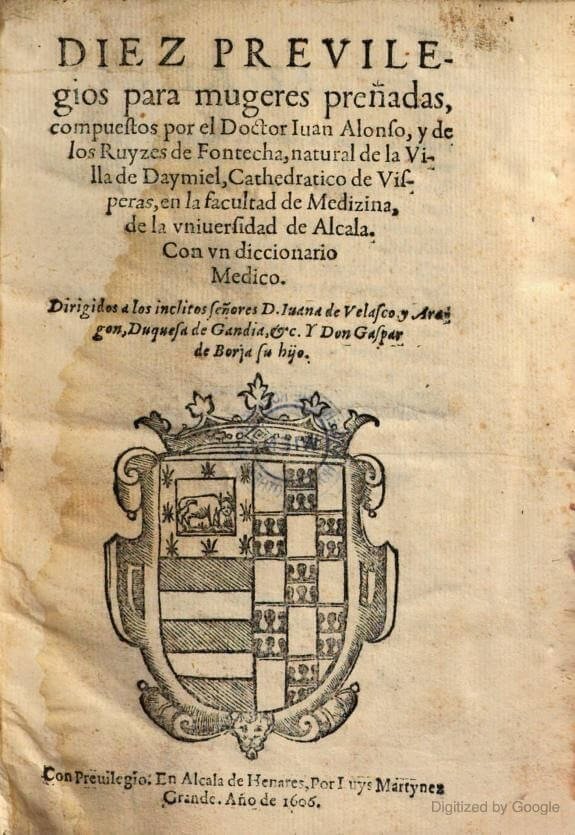 DIEZ PREVILE-
gios para mugeres preñadas,
compuestos por el Doctor Iuan Alonso, y de
los Ruyzes de Fontecha, natural de la Vi-
lla de Daymiel, Cathedratico de Vis-
peras, en la facultad de Medizina,
de la vniuersidad de Alcala.
Con vn diccionario
Medico.
Dirigidos a los inclitos señores D. Iuana de Velasco y Ara-
gon, Duquesa de Gandia, &c. Y Don Gaspar
de Borja su hijo.
Con Preuilegio: En Alcala de Henares, Por Luys Martynez
Grande. Año de 1606.
Digitized by Google